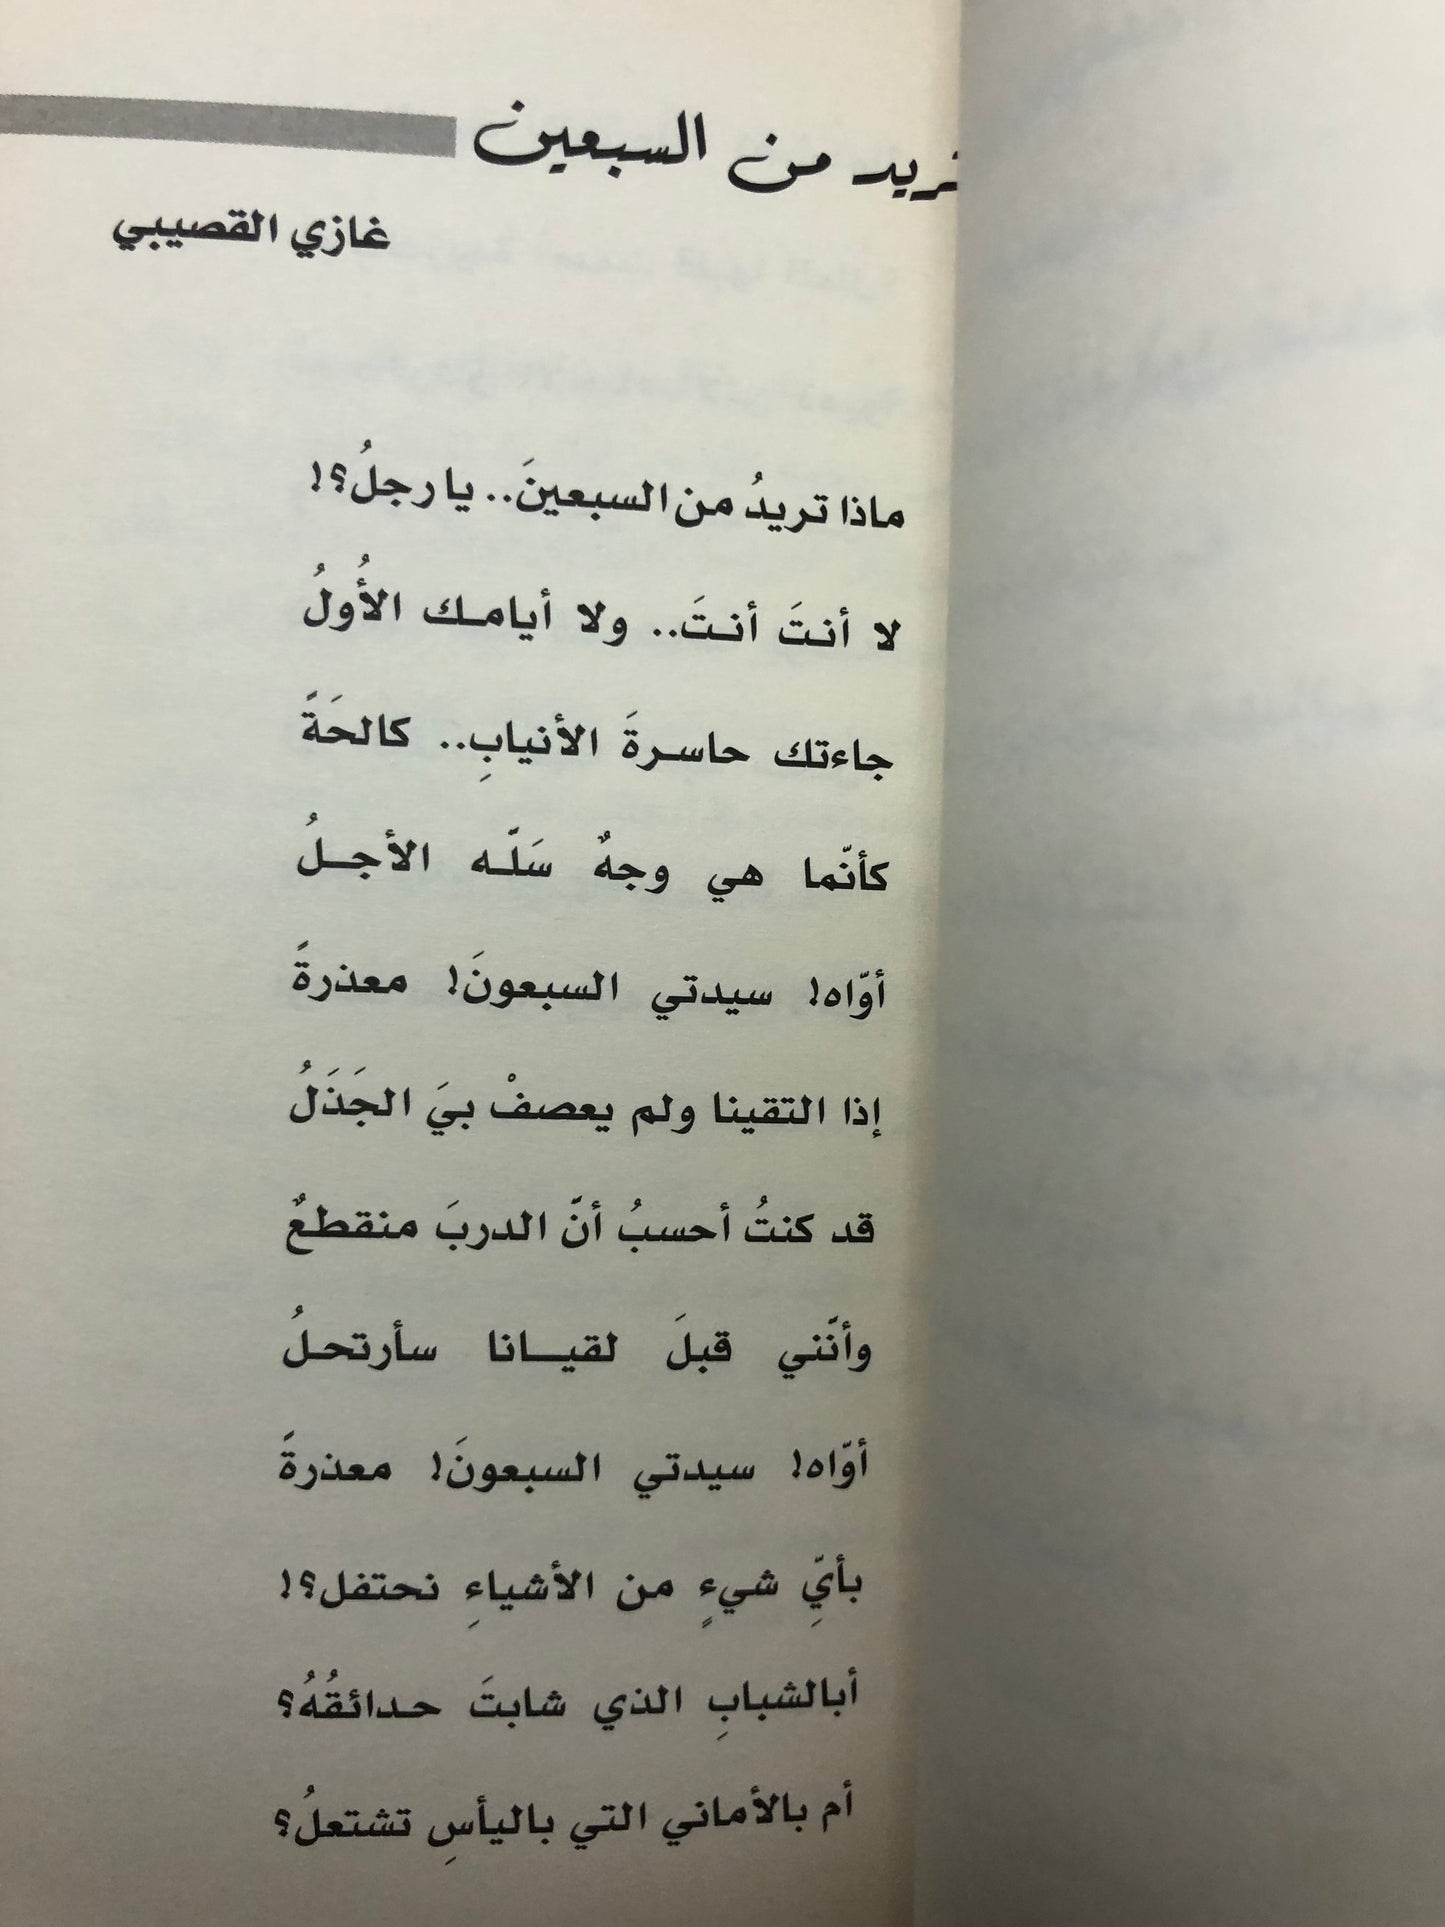 تريد من السبعين
غازي القصيبي
ماذا تريدُ من السبعينَ.. يا رجلُ؟!
لا أنتَ أنتَ.. ولا أيامك الأُولُ
جاءتك حاسرةَ الأنيابِ.. كالحَةً
كأنّما هي وجهٌ سَلّه الأجلُ
أوّاه! سيدتي السبعونَ! معذرةً
إذا التقينا ولم يعصفْ بيَ الجَذَلُ
قد كنتُ أحسبُ أنّ الدربَ منقطعٌ
وأنّني قبلَ لقيانا سأرتحلُ
أوّاه! سيدتي السبعونَ! معذرةً
بأيِّ شيءٍ من الأشياءِ نحتفل؟!
أبالشبابِ الذي شابتَ حدائقُهُ؟
أم بالأماني التي باليأسِ تشتعلُ؟